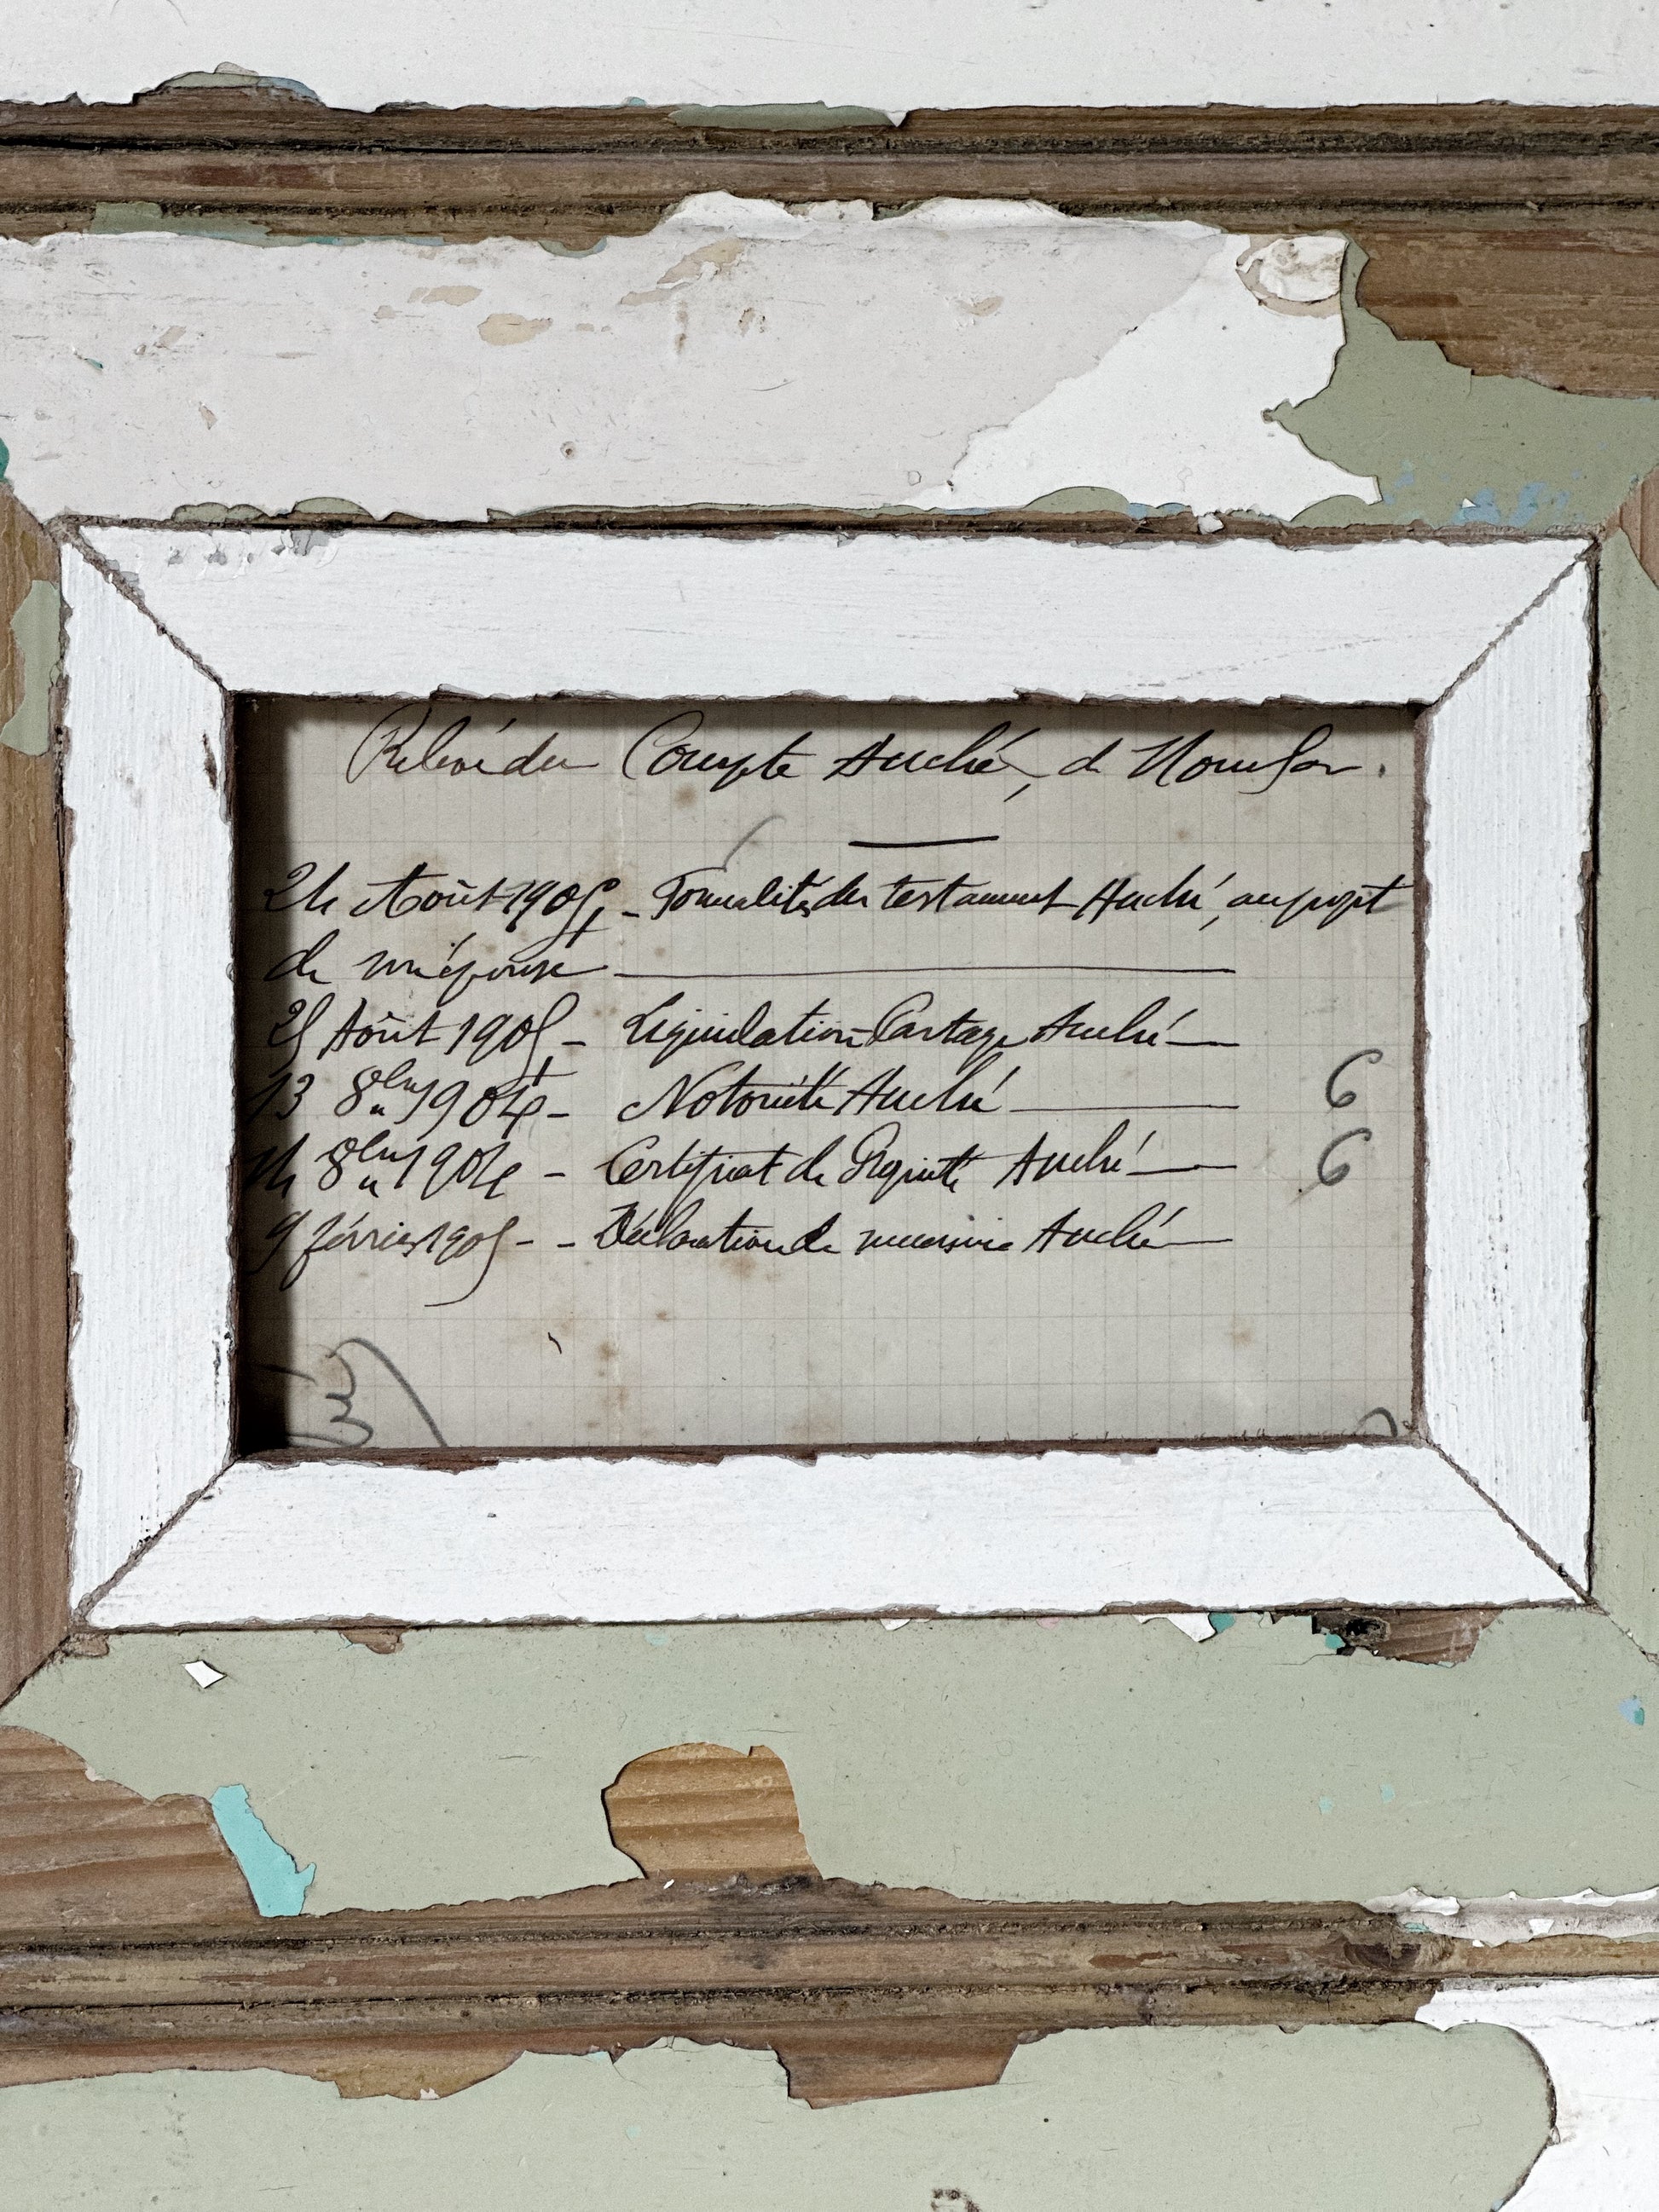 Relevé du Compte Auché, de
24 Août 1904, - Formalités du testament Auché, au
de
25 Août 1905 - Liquidation Partage Auché
13 8bre 1904 - Notoriété Auché 6
14 8bre 1904 - Certificat de Propriété Auché 6
9 février 1905 - - Déclaration de succession Auché